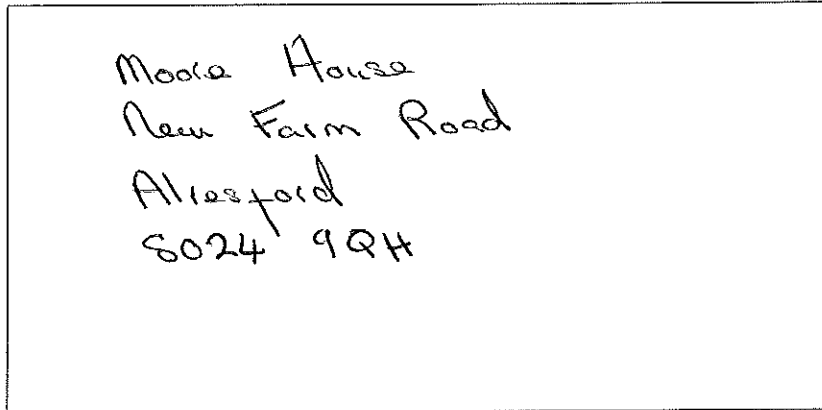 Moore House
New Farm Road
Alresford
SO24 9QH